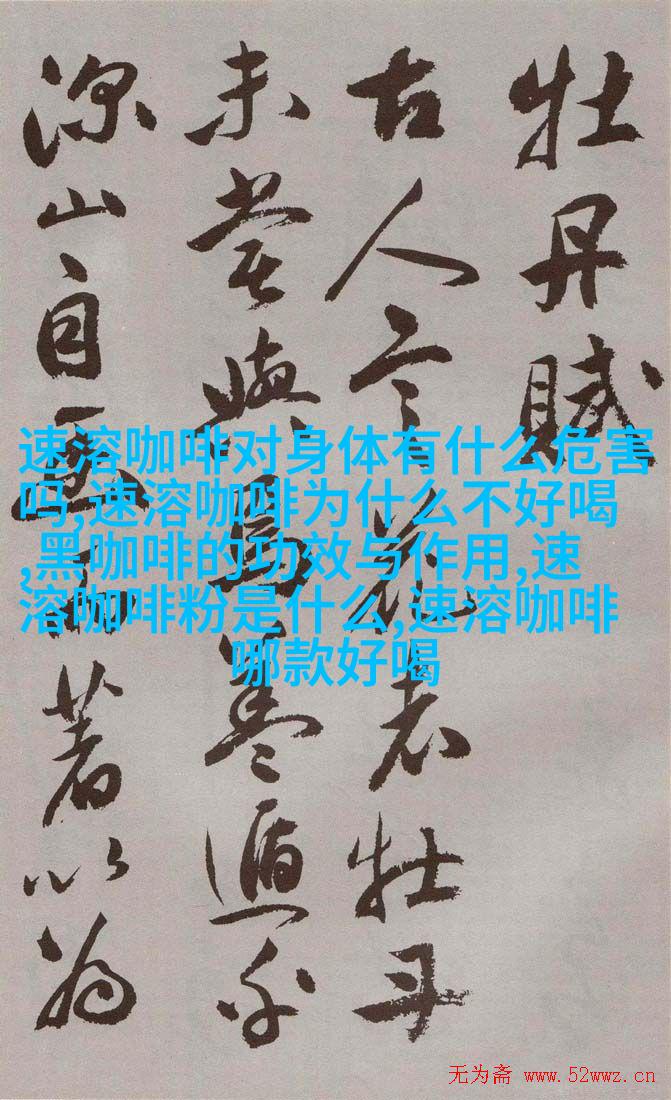 牡丹賦
古人言花者牡丹
未嘗與焉蓋遁乎
深山自幽而著以為
速溶咖啡对身体有什么危害
吗,速溶咖啡为什么不好喝
,黑咖啡的功效与作用,速
溶咖啡粉是什么,速溶咖啡
哪款好喝
无为斋 www.52wwz.cn